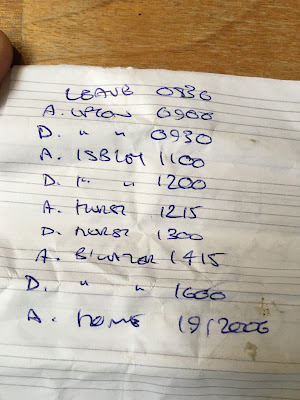 LEAVE 0830
A. UPTON 0900
D. " " 0930
A. 1100
D. " " 1200
A. HURST 1215
D. HURST 1300
A. B'WATER 1415
D. " " 1600
A. HOME 19/2000